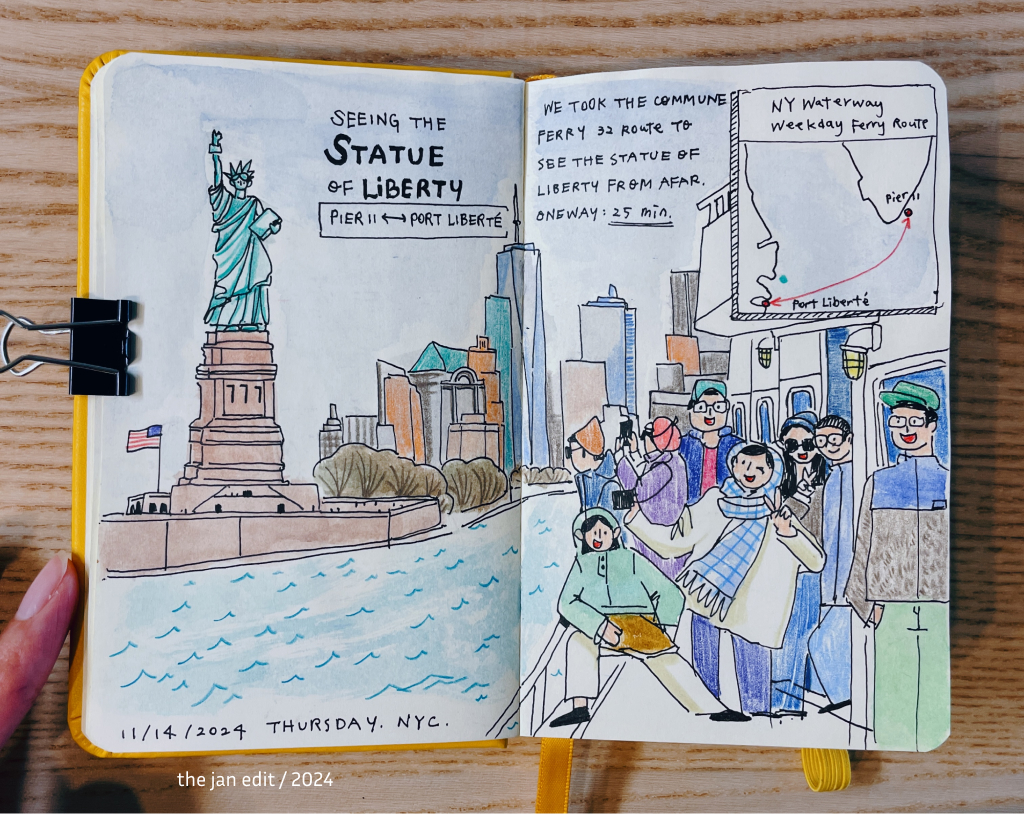 SEEING THE
STATUE
OF LiBERTY
PIER 11 ↔ PORT LIBERTÉ
WE TOOK THE COMMUNE
FERRY 32 ROUTE TO
SEE THE STATUE OF
LIBERTY FROM AFAR.
ONEWAY: 25 min.
NY Waterway
Weekday Ferry Route
Pier 11
Port Liberté
11/14/2024 THURSDAY. NYC.
the jan edit / 2024